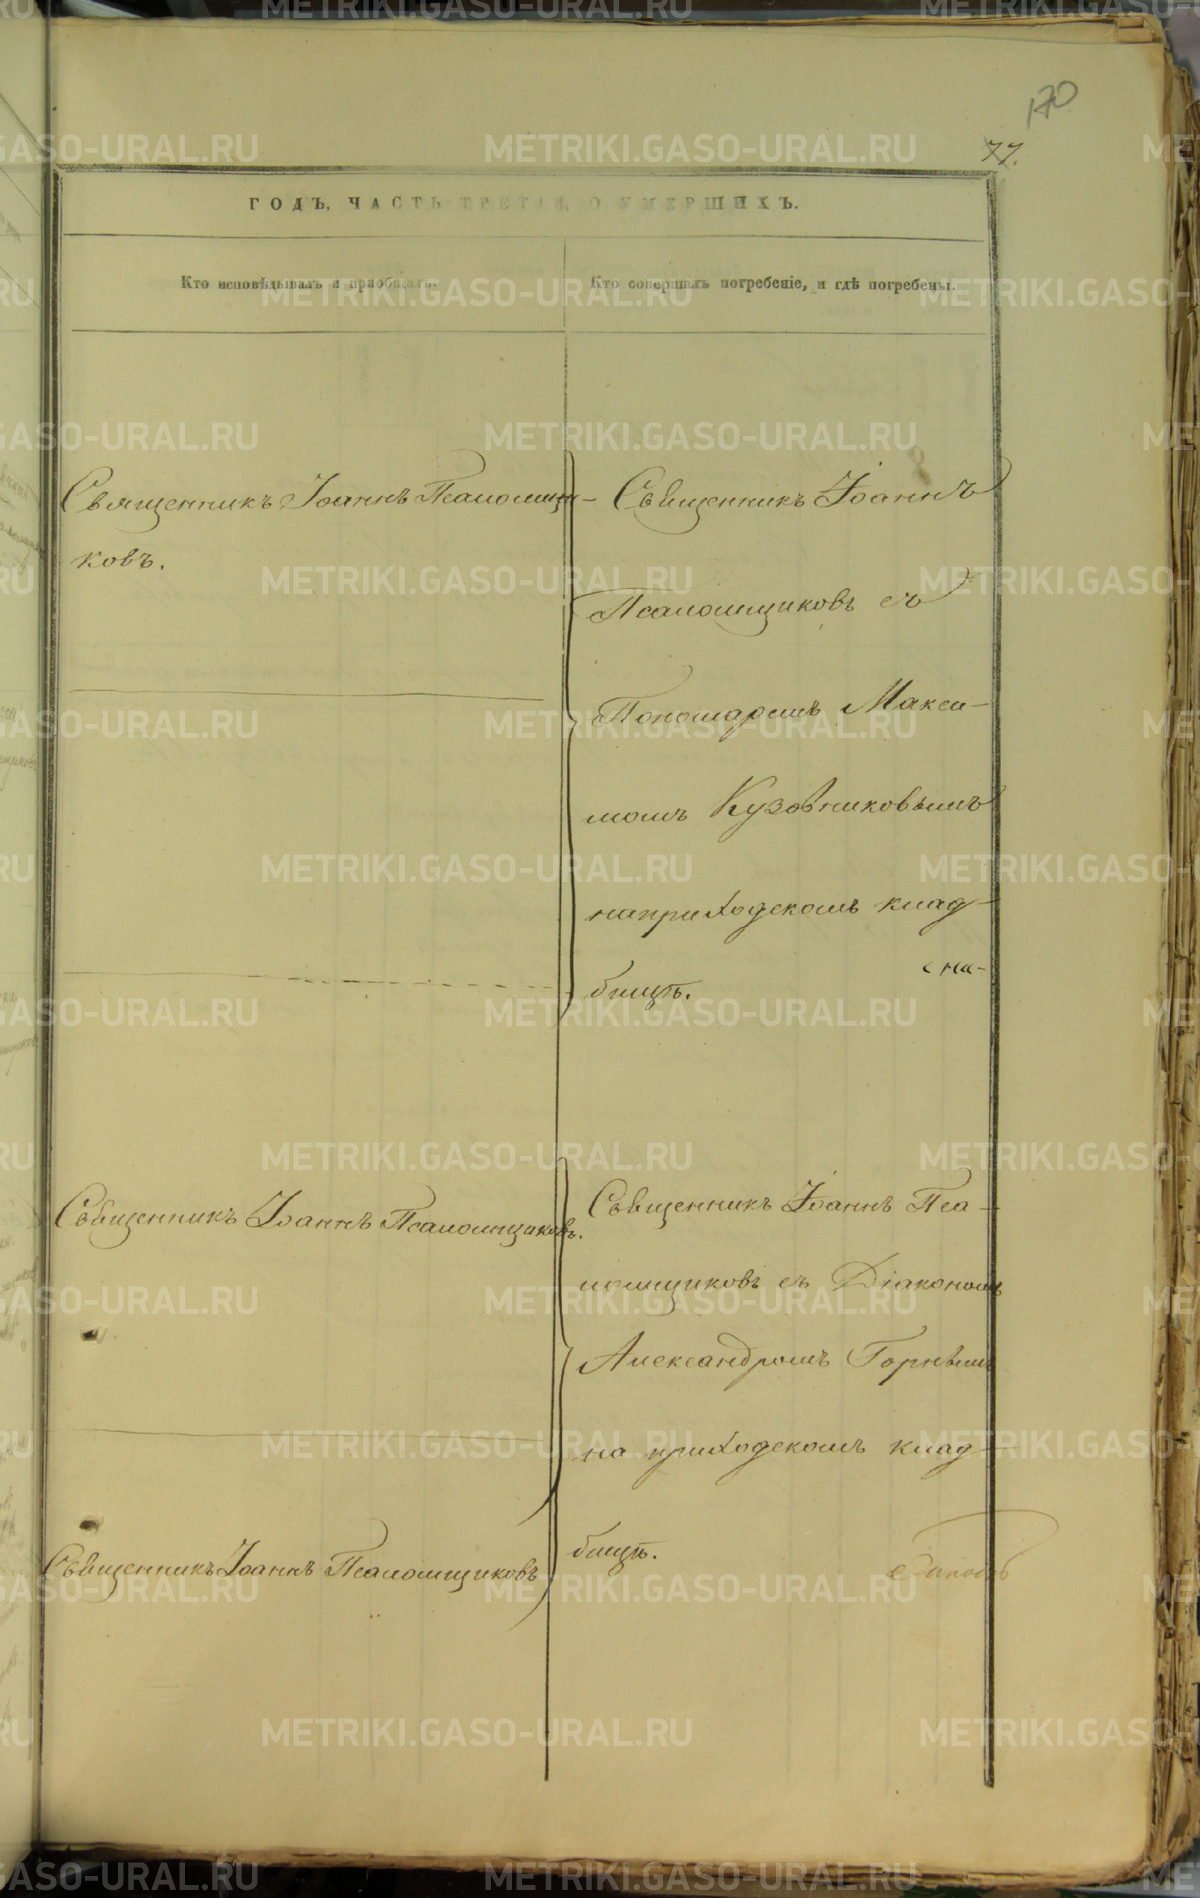 170
77.
ГОДЪ, ЧАСТЬ ТРЕТІЯ, О УМЕРШИХЪ.
Кто исповѣдывалъ и пріобщалъ.
Кто совершалъ погребеніе, и гдѣ погребены.
Священникъ Іоаннъ Псаломщи-
ковъ.
Священникъ Іоаннъ
Псаломщиковъ съ
Пономаремъ Макси-
момъ Кузовниковымъ
на приходскомъ клад-
бищѣ.
с на-
Священникъ Іоаннъ Псаломщиковъ.
Священникъ Іоаннъ Пса-
ломщиковъ съ Діакономъ
Александромъ Горнымъ
на приходскомъ клад-
бищѣ.
Священникъ Іоаннъ Псаломщиковъ
METRIKI.GASO-URAL.RU